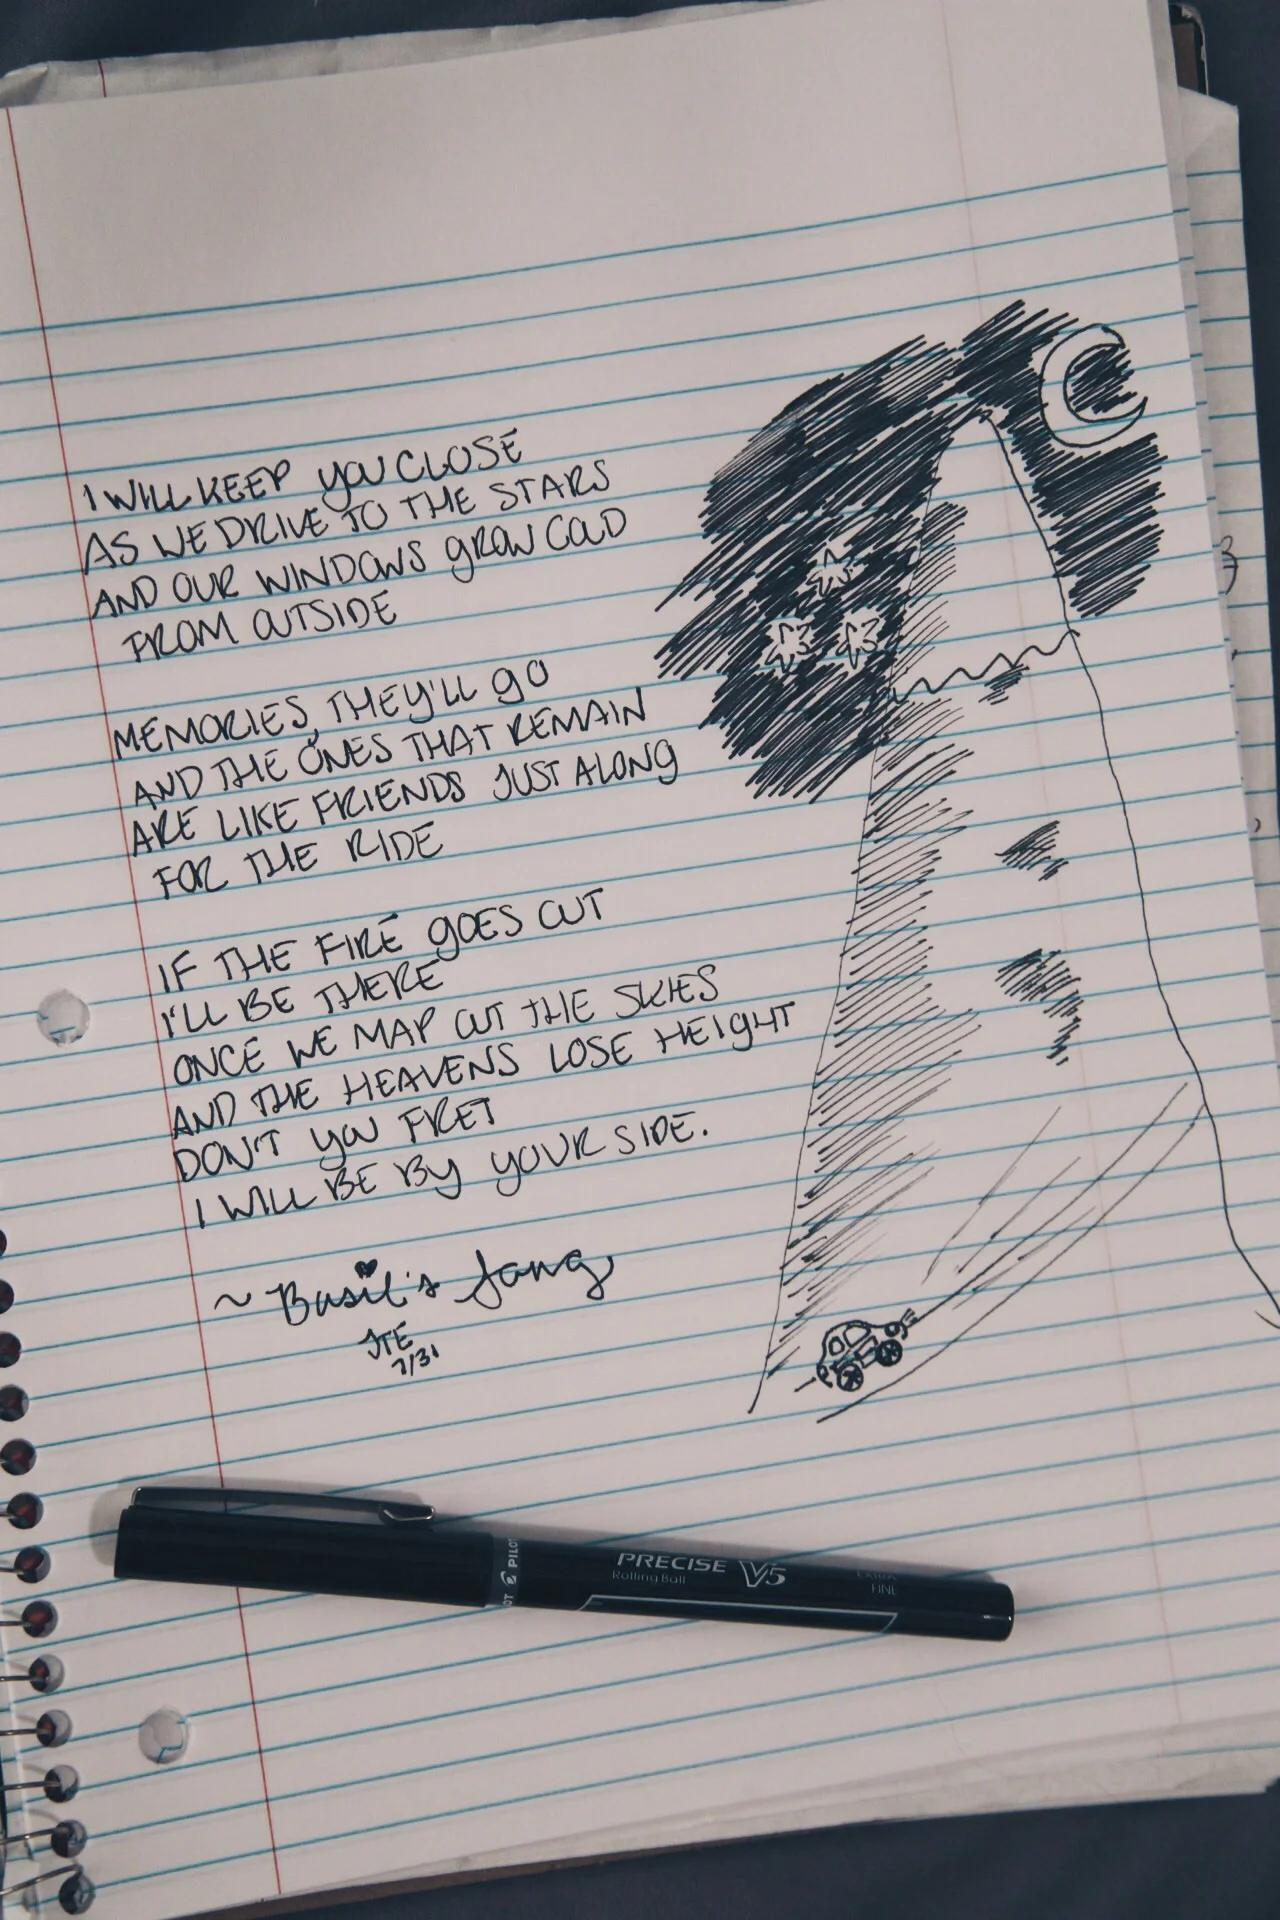 I WILL KEEP YOU CLOSE
AS WE DRIVE TO THE STARS
AND OUR WINDOWS GROW COLD
FROM OUTSIDE
MEMORIES, THEY'LL GO
AND THE ONES THAT REMAIN
ARE LIKE FRIENDS JUST ALONG
FOR THE RIDE
IF THE FIRE GOES OUT
I'LL BE THERE
ONCE WE MAP OUT THE SKIES
AND THE HEAVENS LOSE HEIGHT
DON'T YOU FRET
I WILL BE BY YOUR SIDE.
~ Basil's Song
JTE
7/31
PILOT
PRECISE V5
Rolling Ball
EXTRA
FINE